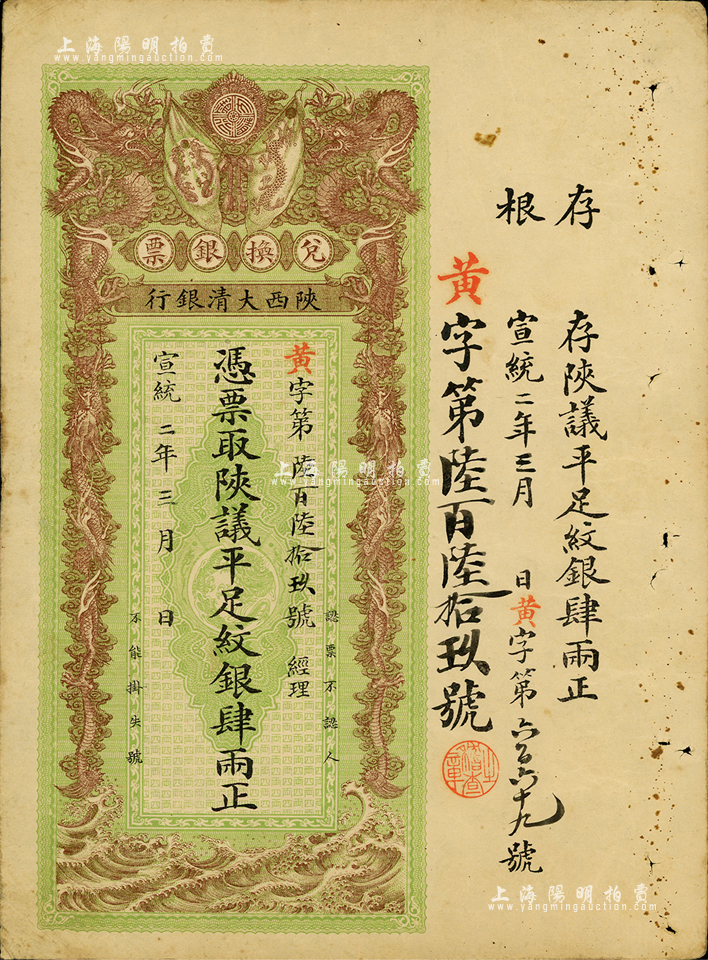 上海陽明拍賣
www.yangmingauction.com
存根
存陝議平足紋銀肆兩正
宣統二年三月 日黃字第六百六十九號
黃字第陸百陸拾玖號
兌換銀票
陝西大清銀行
認票不認人
黃字第陸百陸拾玖號 經理
憑票取陝議平足紋銀肆兩正
宣統二年三月 日
不能掛失號
上海陽明拍賣
www.yangmingauction.com
上海陽明拍賣
www.yangmingauction.com